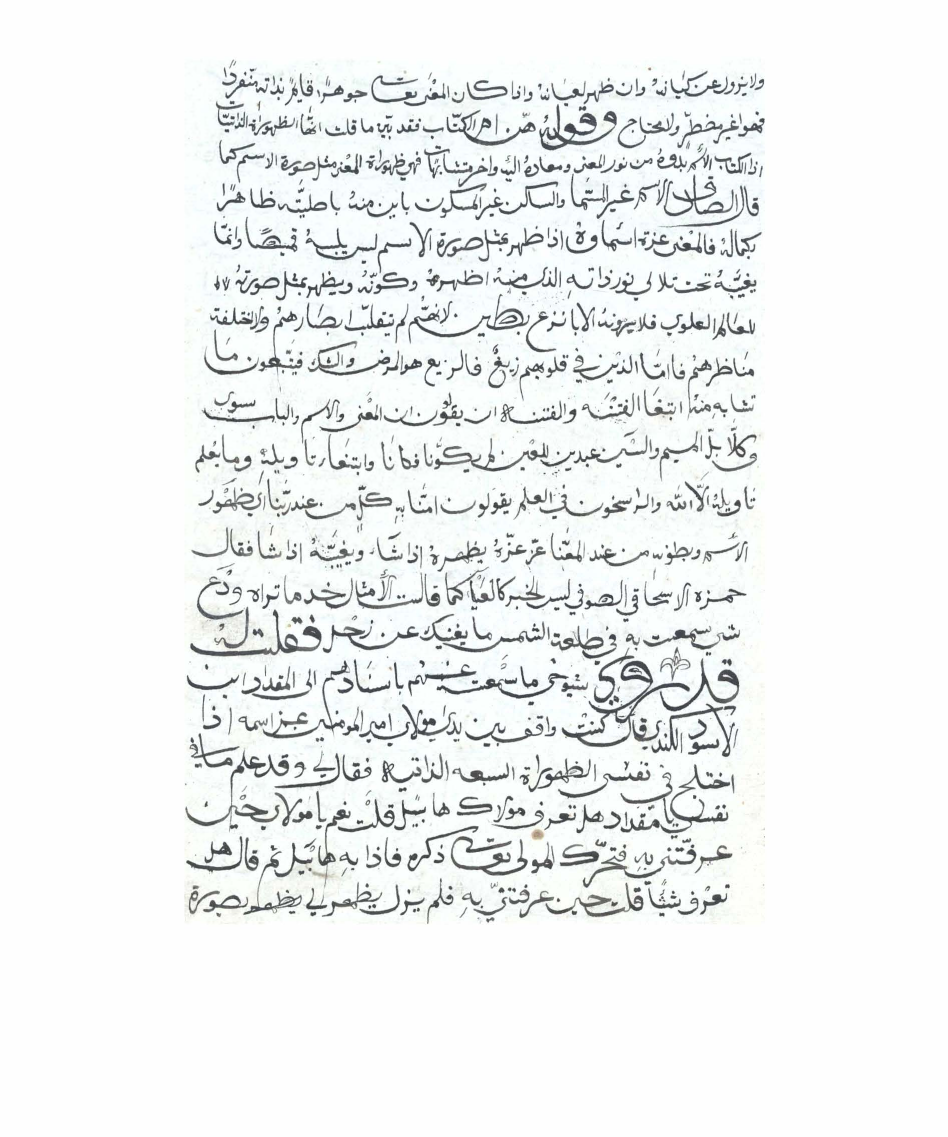 ولا يزول عن كيانه وان ظهر لعيانه واذا كان المعنى تعالى جوهرا قايم بذاته منفردا
فهوا غير مضطر ولا محتاج وقوله هن ام الكتاب فقد بين ما قلت انها الظهوراة الذاتيات
اذا الكتاب الاسم بدوه من نور المعنى ومعاده اليه واخر متشابهات فهي ظهوراة المعنى مثل صورة الاسم كما
قال الصادق الاسم غير المسما والساكن غير المسكون باين منه باطنيته ظاهرا
بكماله فالمعنى عزة اسماوه اذا ظهر بمثل صورة الاسم ليس يلبسه قمصا وانما
يغيبه تحت تلالي نور ذاته الذي منه اظهره وكونه ويظهر بمثل صورته
للعالم العلوي فلا يرونه الا بانزع بطين لانهم لم تتقلب ابصارهم ولا تختلفة
مناظرهم فاما الذين في قلوبهم زيغ فالزيع هو المرض والشك فيتبعون ما
تشابه منه ابتغا الفتنه والفتنه ان يقولون ان المعنى والاسم والباب سوى
وكلا بل الميم والسين عبدين للمعنى لم يكونا فكانا وابتغا تاويله وما يعلم
تاويله الا الله والراسخون في العلم يقولون امنا به كل من عند ربنا اي ظهور
الاسم وبطونه من عند المعنا عز عزه يظهره اذا شا ويغيبه اذا شا فقال
حمزه الاسحاقي الصوفي ليس الخبر كالعيا كما قالت الامثال خد ما تراه ودع
شي سمعت به في طلعة الشمس ما يغنيك عن زحل فقلت له
قد روي شيوخي ما سمعت عنهم باسنادهم الى المقداد ابن
الاسود الكندي قال كنت واقف بين يدي مولاي امير المومنين عز اسمه اذا
اختلج في نفسي الظهوراة السبعه الذاتيه فقال لي وقد علم ما في
نفسي يا مقداد هل تعرف مولاك هابيل قلت نعم يا مولاي حين
عرفتني به فتحرك المولى تعالى ذكره فاذا به هابيل ثم قال هل
تعرف شيثا قلت حين عرفتني به فلم يزل يظهر لي يظهر بصورة